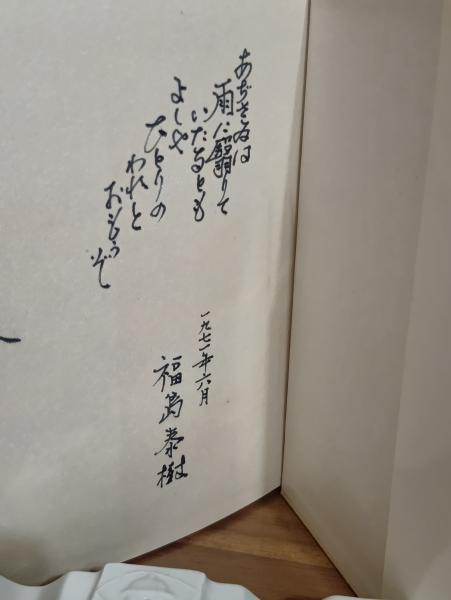 あぢさゐは
雨に翳りて
いたるとも
よしや
ひとりの
われと
おもうぞ
一九七一年六月
福島泰樹